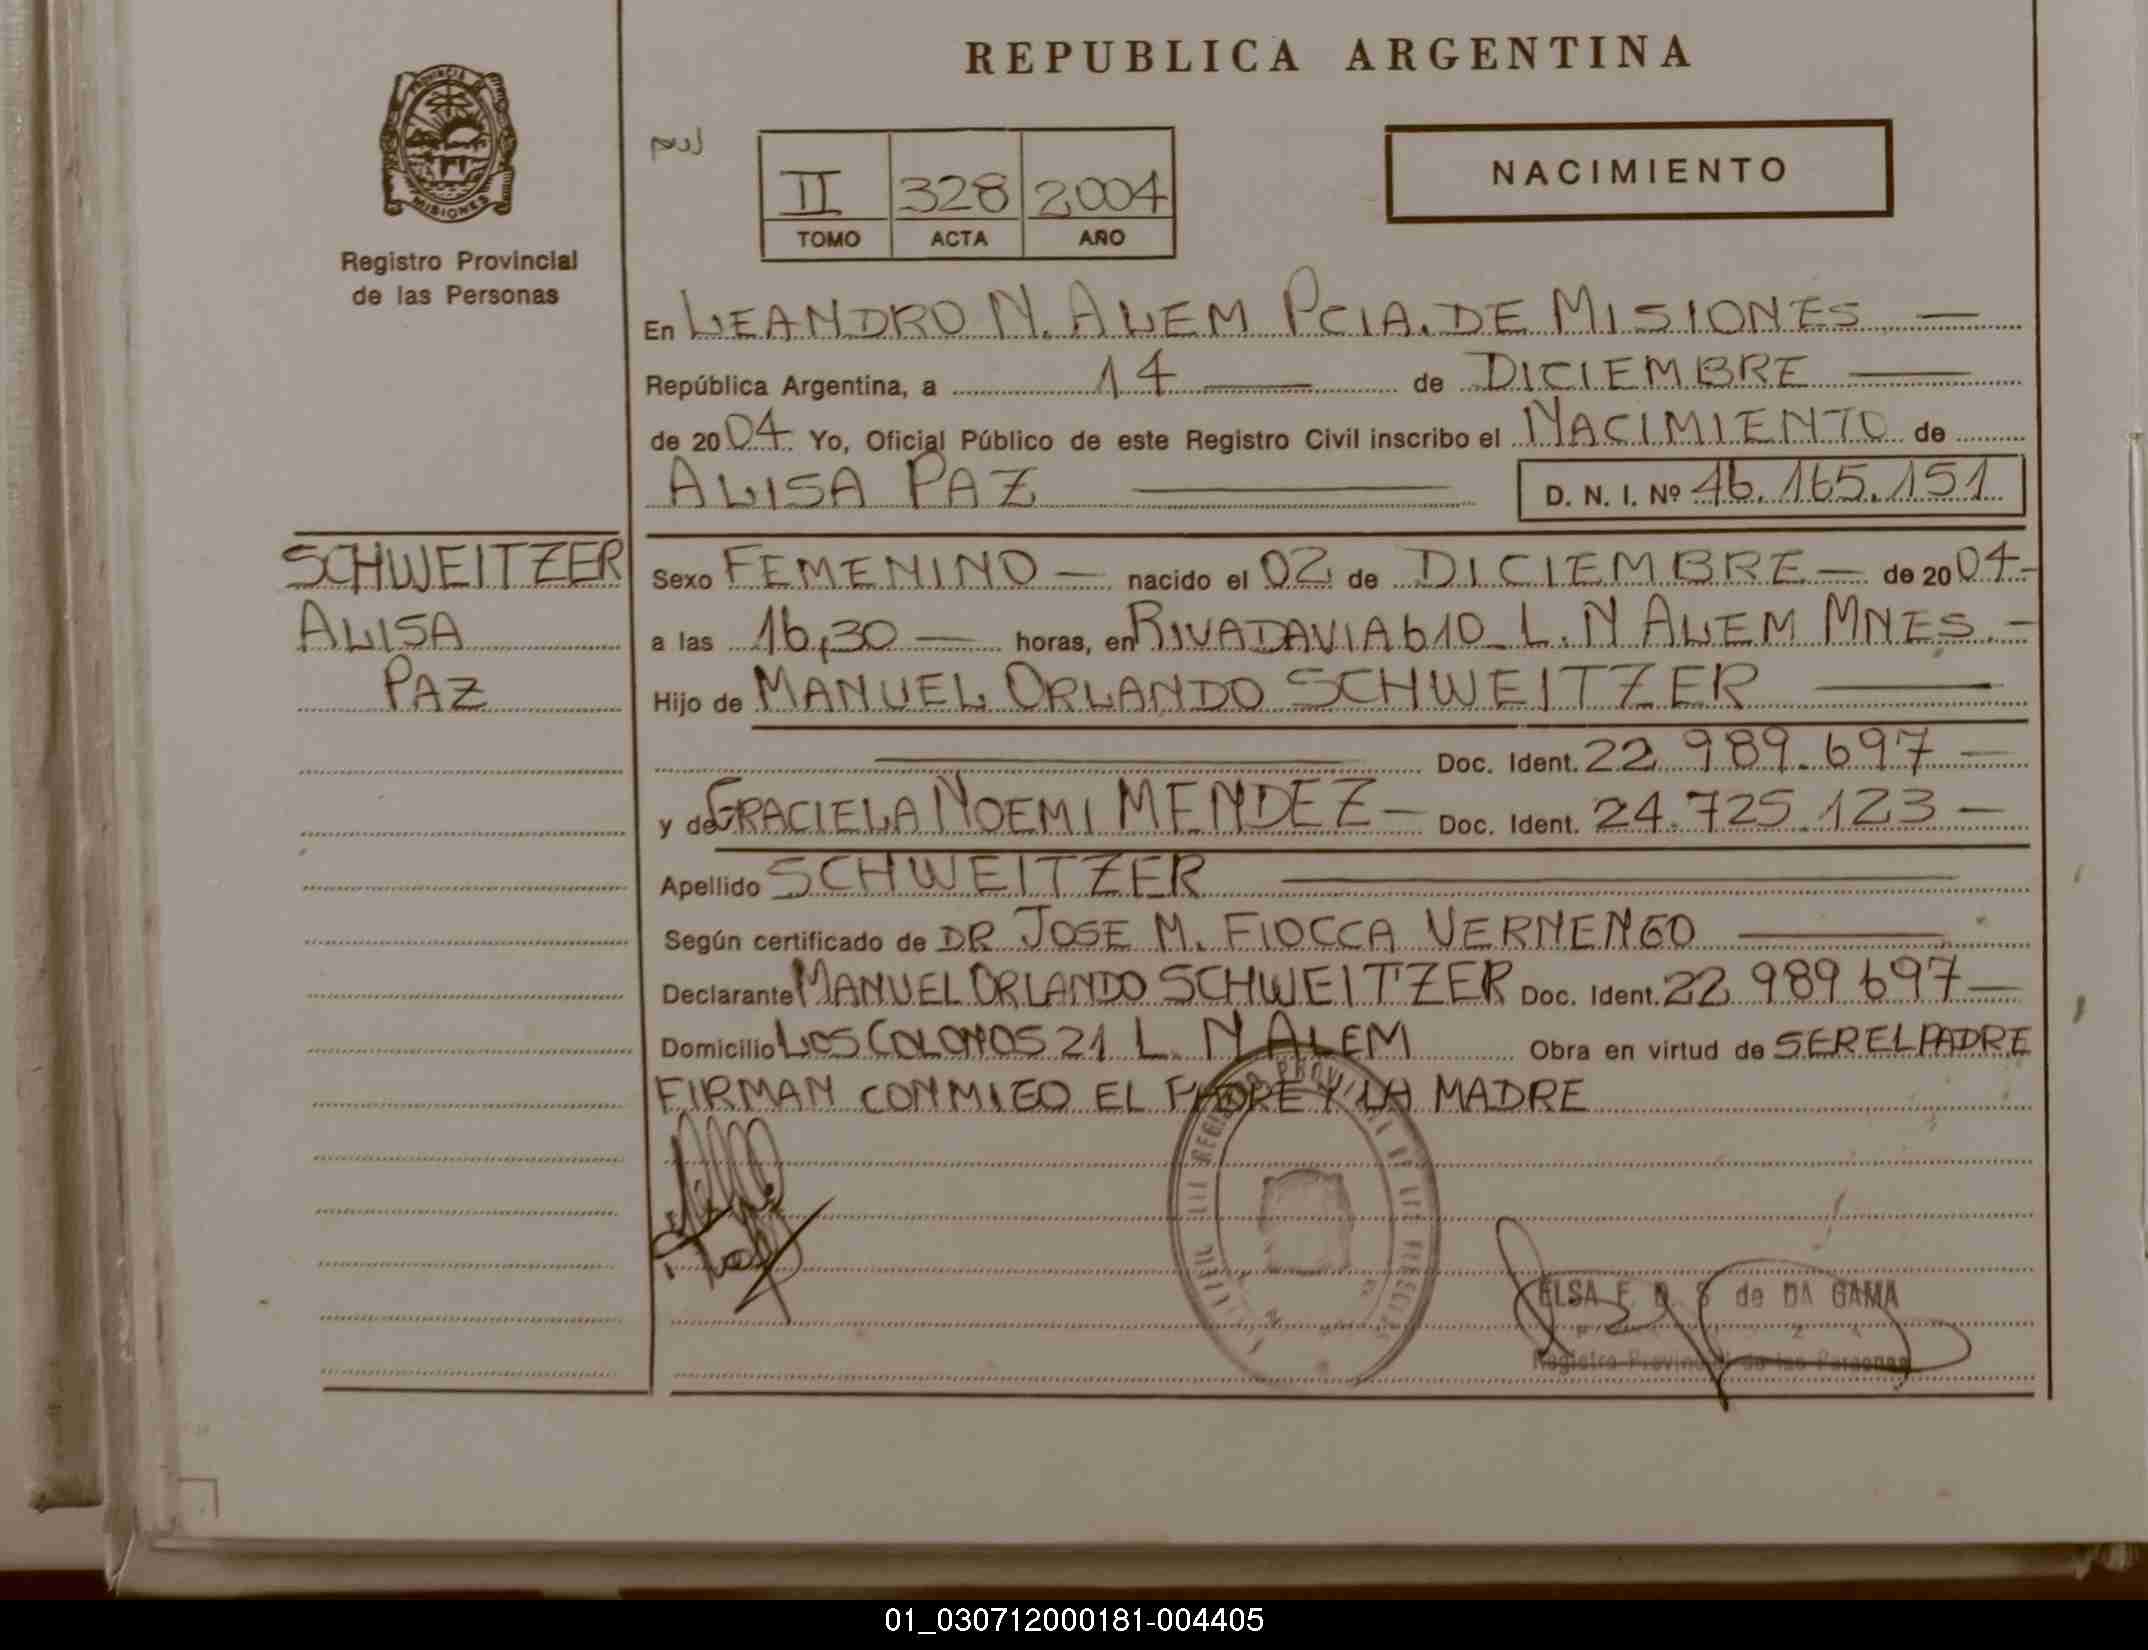 REPUBLICA ARGENTINA
PROVINCIA
MISIONES
Registro Provincial
de las Personas
II 328 2004
TOMO ACTA AÑO
NACIMIENTO
En LEANDRO N. ALEM PCIA. DE MISIONES
República Argentina, a 14 de DICIEMBRE
de 2004 Yo, Oficial Público de este Registro Civil inscribo el NACIMIENTO de
ALISA PAZ D. N. I. Nº 46.165.151
SCHWEITZER
ALISA
PAZ
Sexo FEMENINO nacido el 02 de DICIEMBRE de 2004
a las 16,30 horas, en RIVADAVIA 610 L. N ALEM MNES.
Hijo de MANUEL ORLANDO SCHWEITZER
Doc. Ident. 22.989.697
y de GRACIELA NOEMI MENDEZ Doc. Ident. 24.725.123
Apellido SCHWEITZER
Según certificado de DR JOSE M. FIOCCA VERNENGO
Declarante MANUEL ORLANDO SCHWEITZER Doc. Ident. 22 989 697
Domicilio LOS COLONOS 21 L. N ALEM Obra en virtud de SER EL PADRE
FIRMAN CONMIGO EL PADRE Y LA MADRE
ELSA de DA GAMA
Registro Provincial de las Personas
01_030712000181-004405